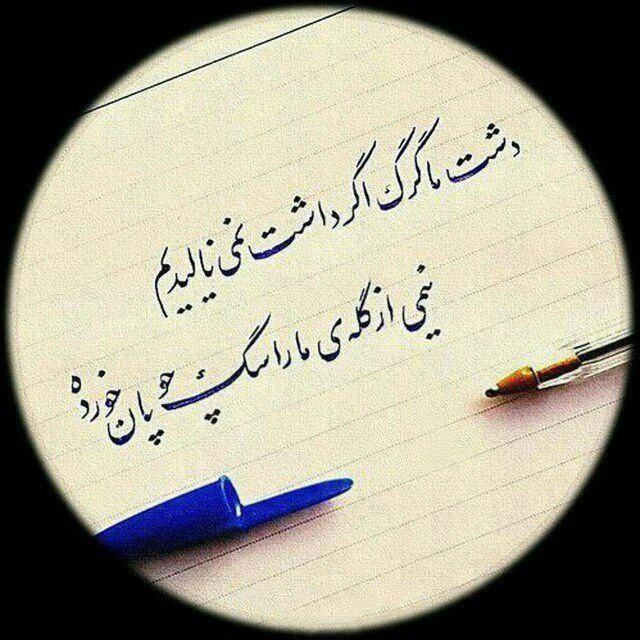 دشت ما گرگ اگر داشت نمی نالیدیم
نیمی از گله‌ی ما را سگ چوپان خورده